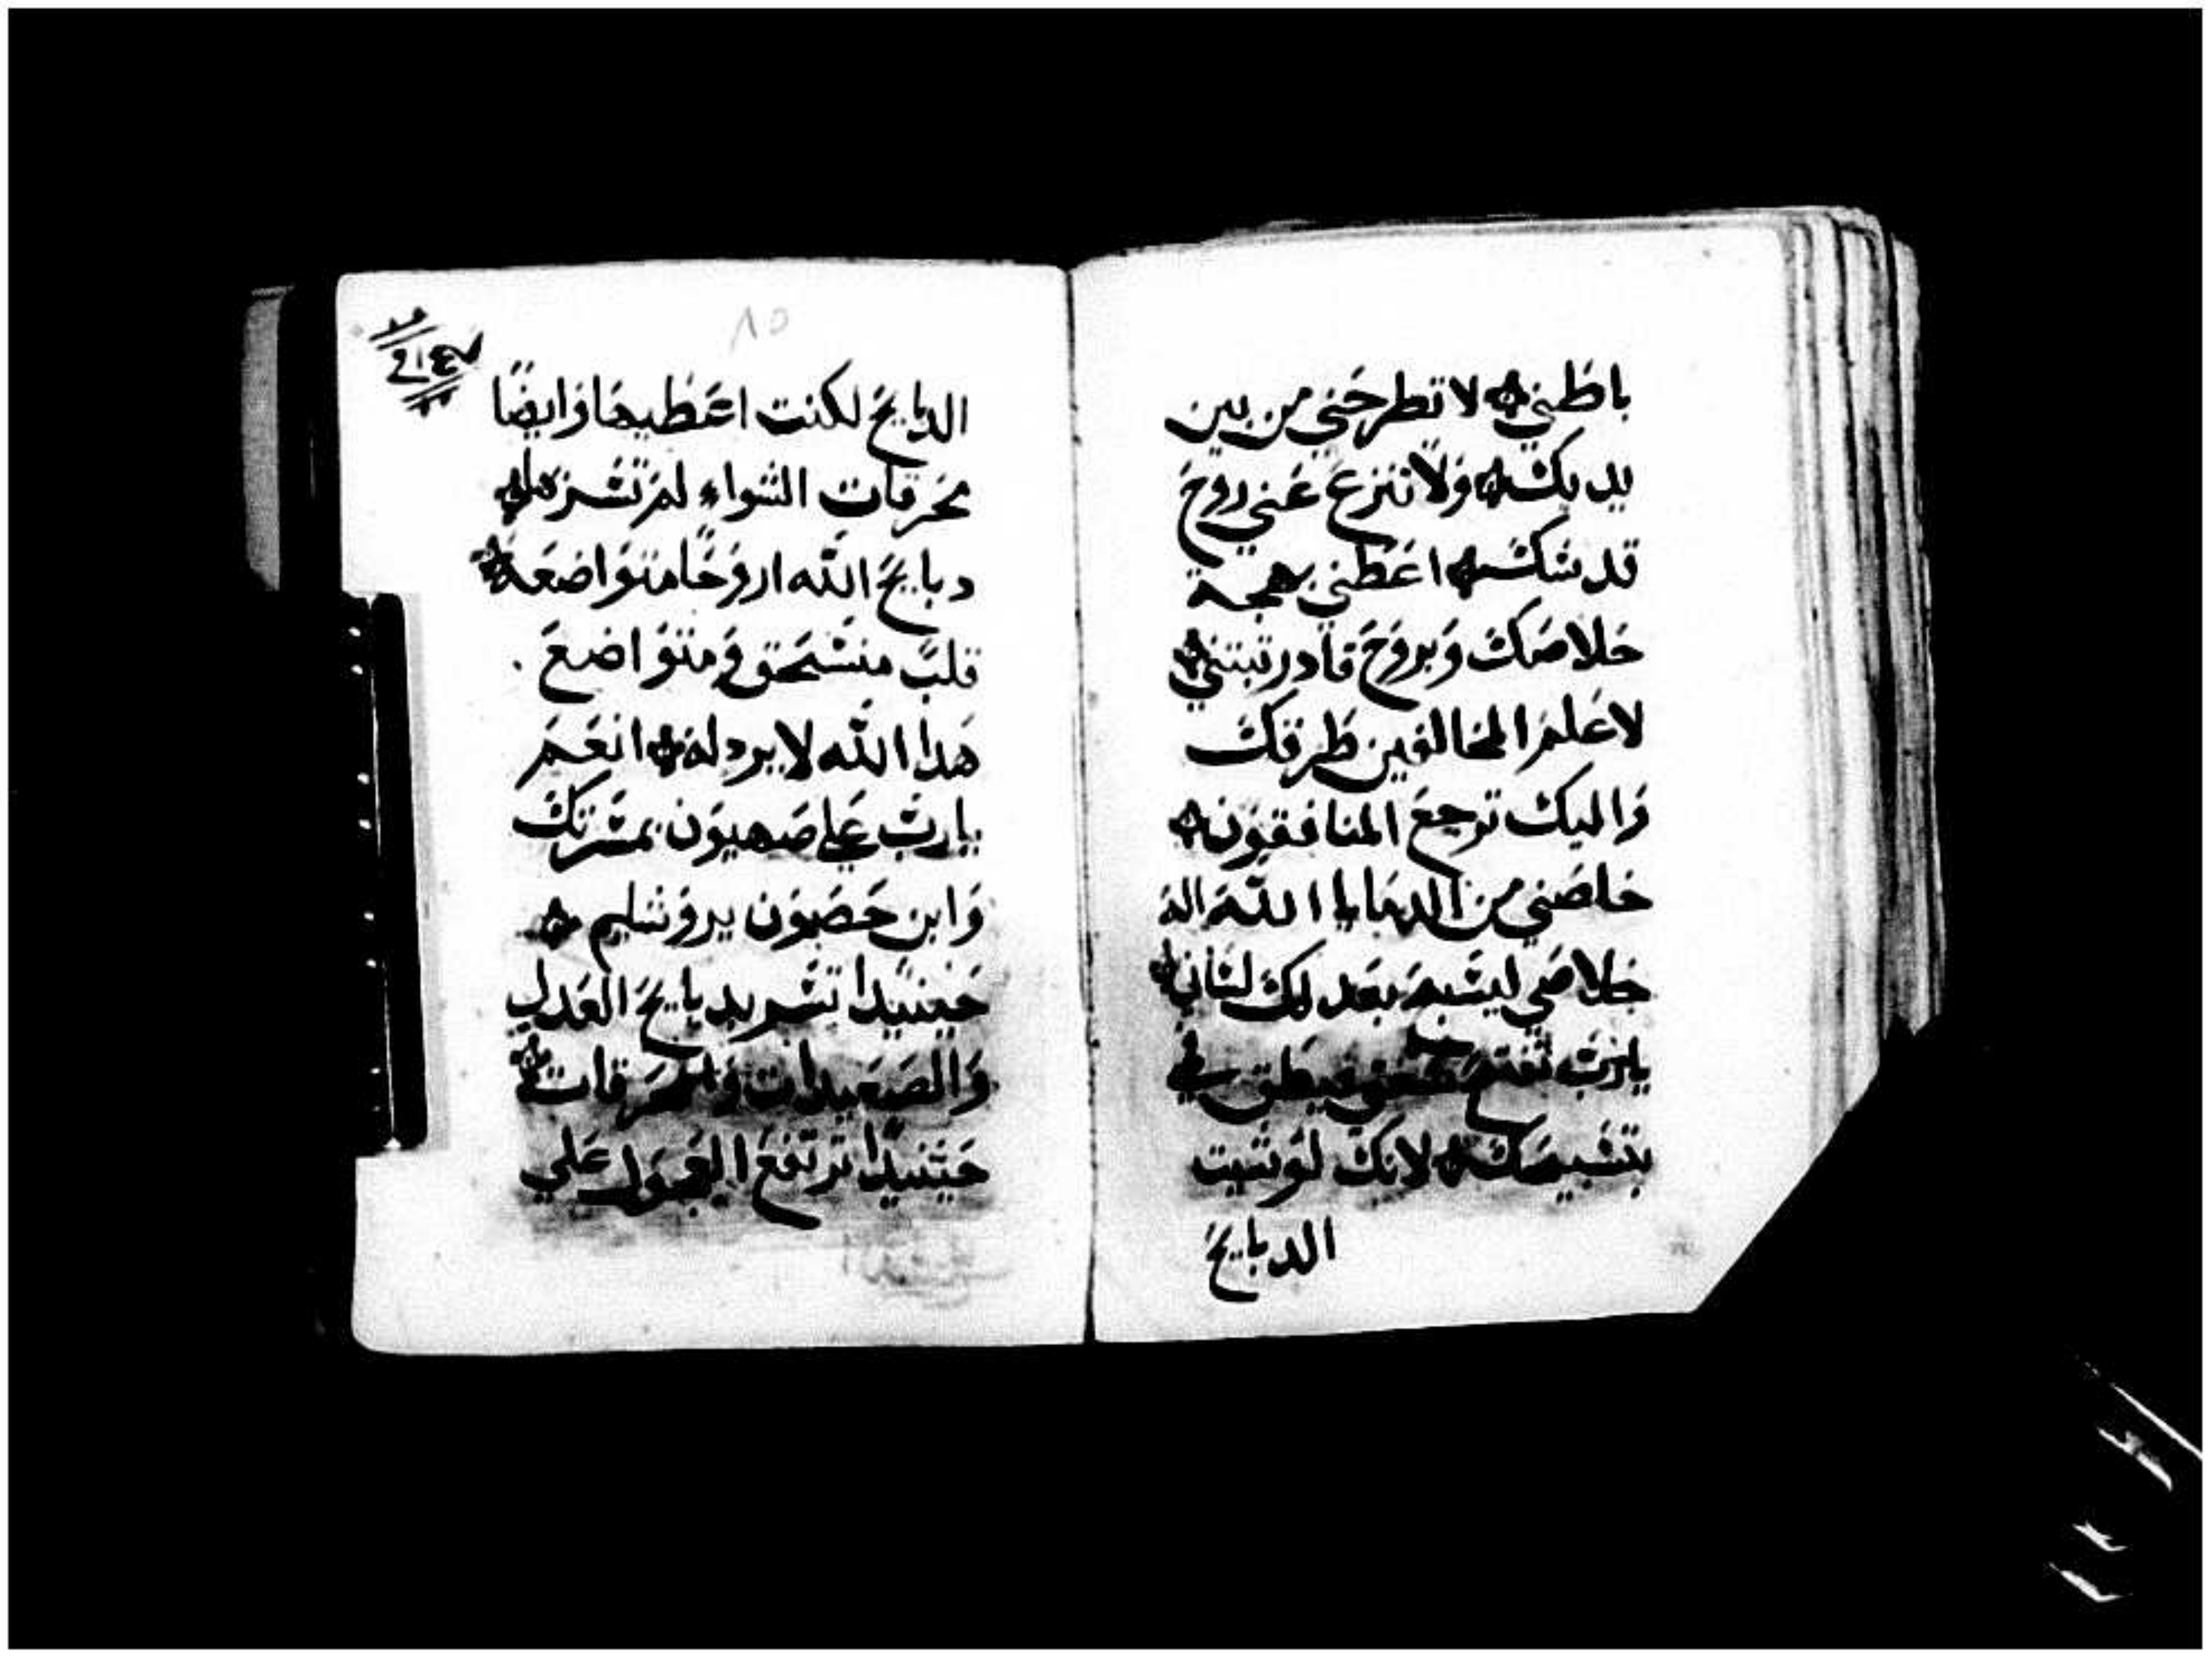 باطني لا تطرحني من بين
يديك ولا تنزع عني روح
قدسك اعطني بهجة
خلاصك وبروح قادر تبتني
لاعلم المخالفين طرقك
واليك ترجع المنافقون
خلصني من الدمايا الله اله
خلاصي ليتبهج بعدلك لساني
يارب تفتح شفتي في
بتسبيحك لانك لو شيت
الدبايح
٨٥
الدبايح لكنت اعطيها وايضا
محرقات الشواء لم تسر
دبايح الله اروحا متواضعة
قلب منسحق ومتواضع
هدا الله لا يردله انعم
يارب علي صهيون بمسرتك
وابن حصون يروشليم
حينيدا تسر بدبايح العدل
والصعيدات والمحرقات
حينيدا ترتفع العجول علي